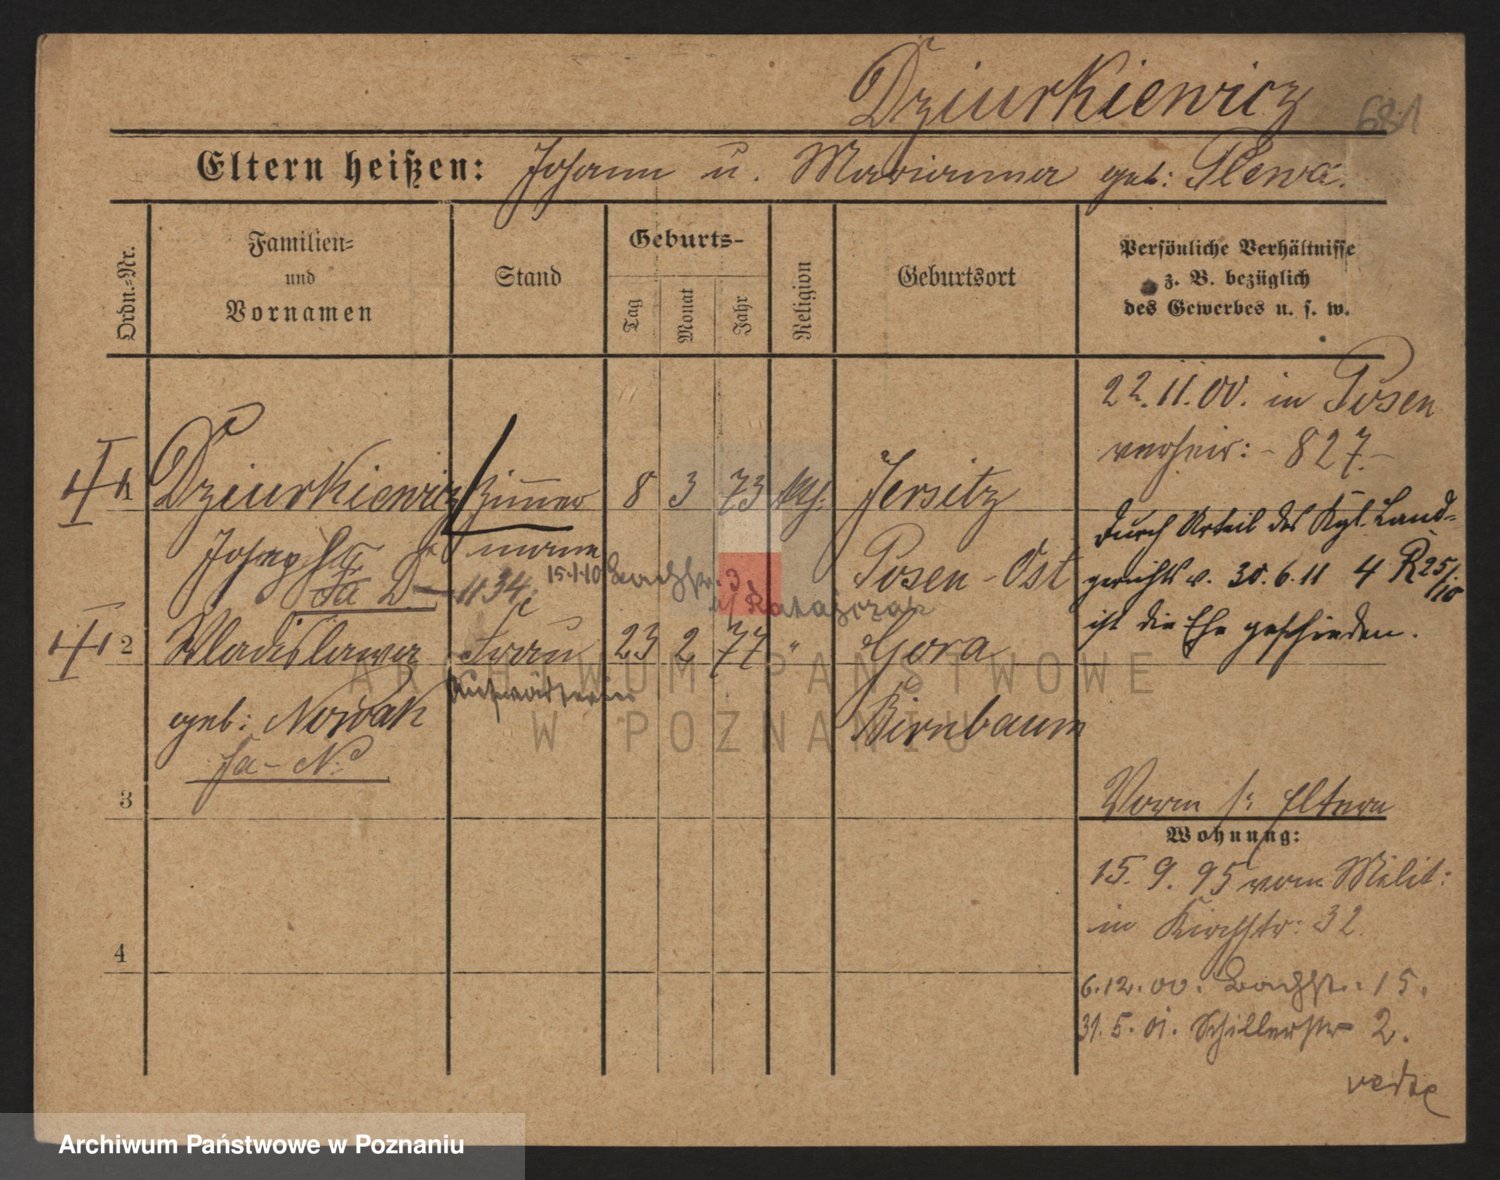 Dziurkiewicz 681
Eltern heißen: Johann u. Marianna geb: Plewa.
Ordn.-Nr.
Familien-
und
Vornamen
Stand
Geburts-
Tag
Monat
Jahr
Religion
Geburtsort
Persönliche Verhältnisse
z. B. bezüglich
des Gewerbes u. s. w.
22.11.00. in Posen
verheir: - 827.-
1 Dziurkiewicz Zimmer 8 3 73 kth. Jersitz
Joseph mann Posen-Ost
Fa 2 1134
15.1.10 Bachstr. 3
b/ Katajczak
Durch Urteil des Kgl. Land-
gerichts v. 30.6.11 4 R 25/10
ist die Ehe geschieden.
2 Wladislawa Frau 23 2 77 " Gora
Aufwärterin
geb: Nowak Birnbaum
Fa - N
3
4
Vorm s: Eltern
Wohnung:
15. 9. 95 vom Milit:
in Kirchstr: 32.
6.12.00. Bachstr. 15.
31.5.01. Schillerstr 2.
verte
ARCHIWUM PAŃSTWOWE
W POZNANIU
Archiwum Państwowe w Poznaniu